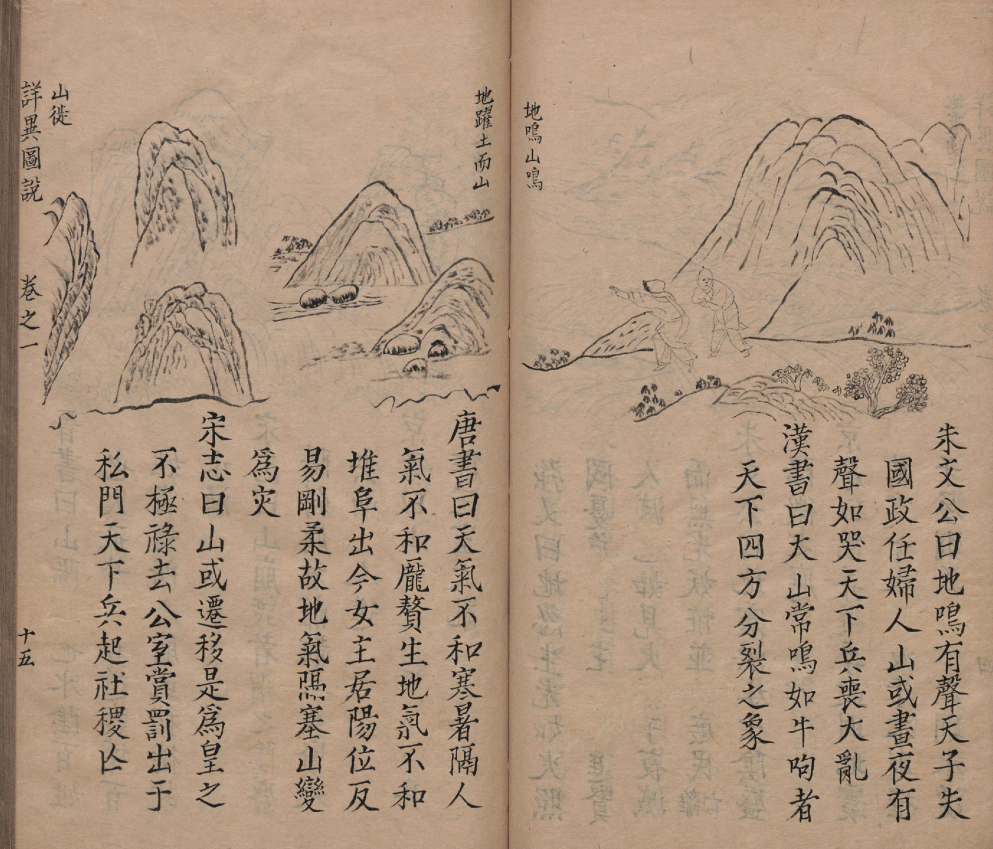 地鳴山鳴
朱文公曰地鳴有聲天子失
國政任婦人山或晝夜有
聲如哭天下兵喪大亂
漢書曰大山常鳴如牛吼者
天下四方分裂之象
地躍土而山
唐書曰天氣不和寒暑隔人
氣不和龐贅生地氣不和
堆阜出今女主居陽位反
易剛柔故地氣隔塞山變
為灾
山徙
宋志曰山或遷移是為皇之
不極祿去公室賞罰出于
私門天下兵起社稷亾
詳異圖說
卷之一
十五